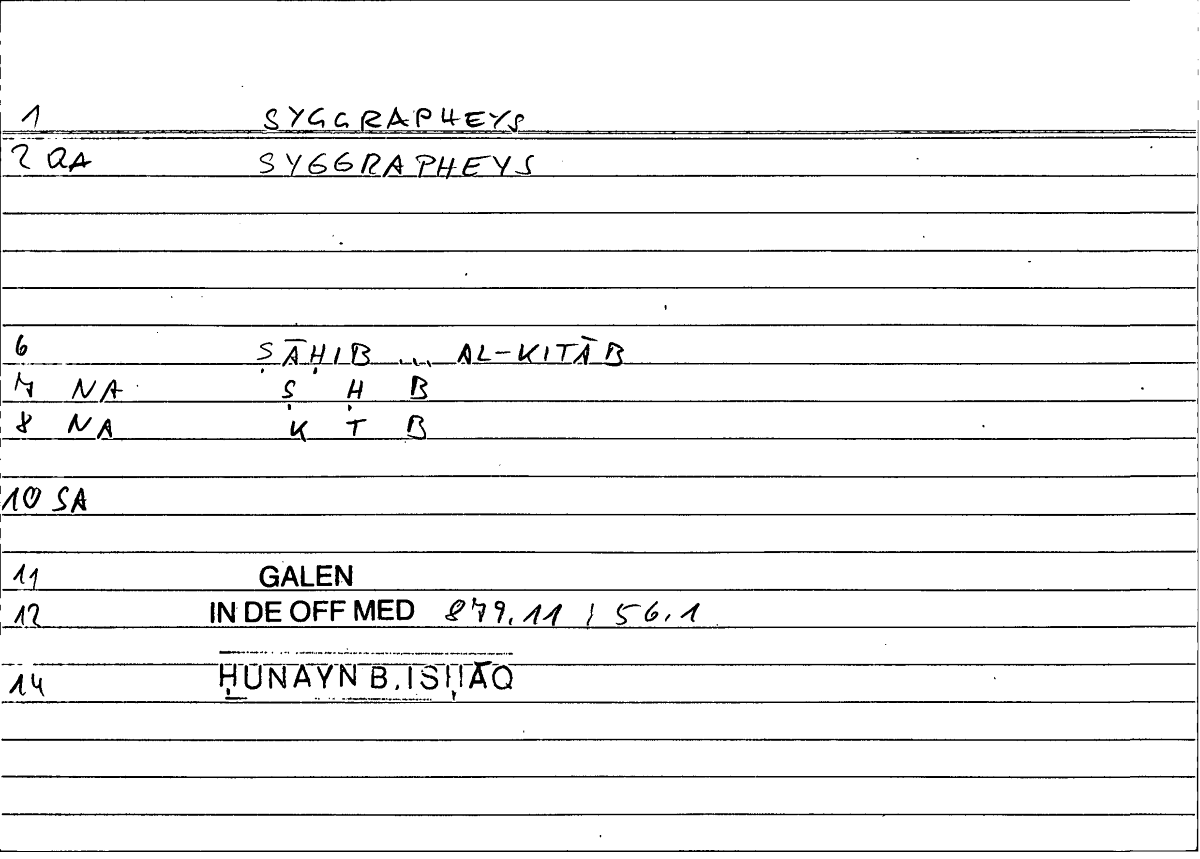 1 SYGGRAPHEYS
2 QA SYGGRAPHEYS
6 ṢĀḤIB ... AL-KITĀB
7 NA Ṣ Ḥ B
8 NA K T B
10 SA
11 GALEN
12 IN DE OFF MED 879,11 / 56,1
14 ḤUNAYN B. ISḤĀQ